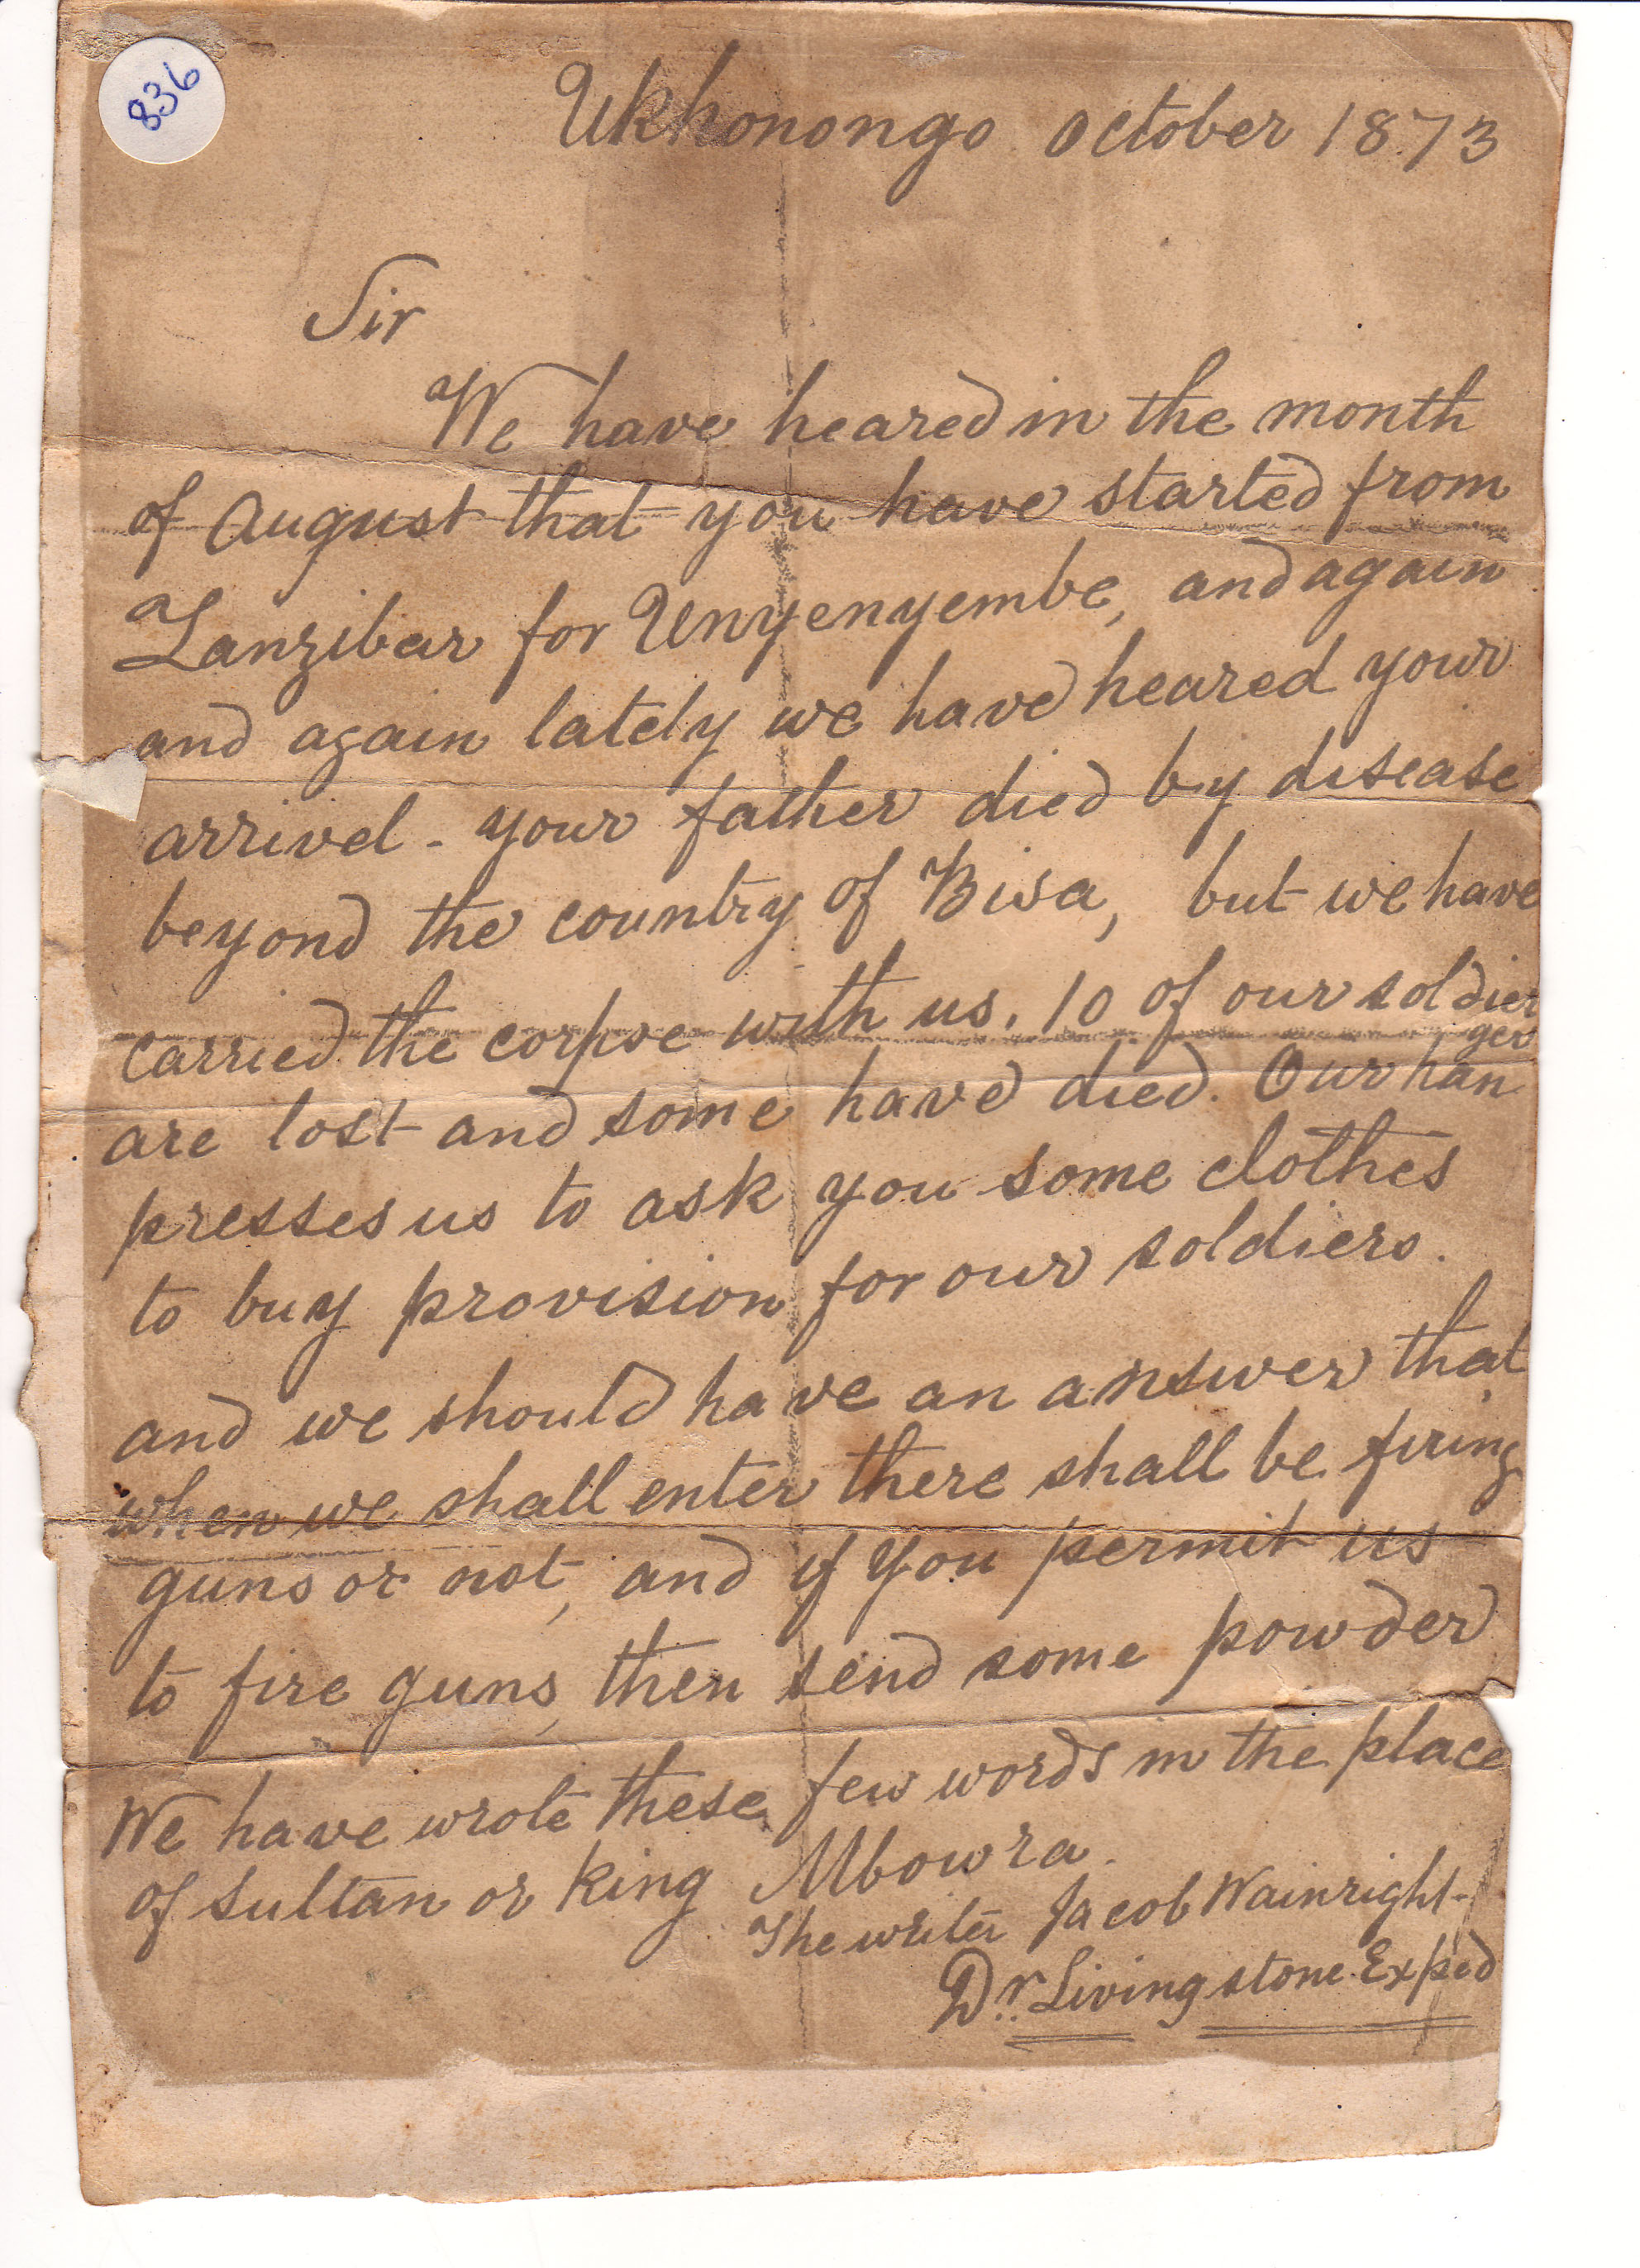 836
Ukhonongo October 1873
Sir
We have heared in the month
of August that you have started from
Zanzibar for Unyenyembe, and again
and again lately we have heared your
arrivel - your father died by disease
beyond the country of Bisa, but we have
carried the corpse with us. 10 of our soldier
are lost and some have died. Our han
ges
presses us to ask you some clothes
to buy provision for our soldiers.
and we should have an answer that
when we shall enter there shall be firing
guns or not, and if you permit us
to fire guns, then send some powder
We have wrote these few words in the place
of sultan or king Mbowra.
The writer Jacob Wainright-
Dr. Livingstone Exped